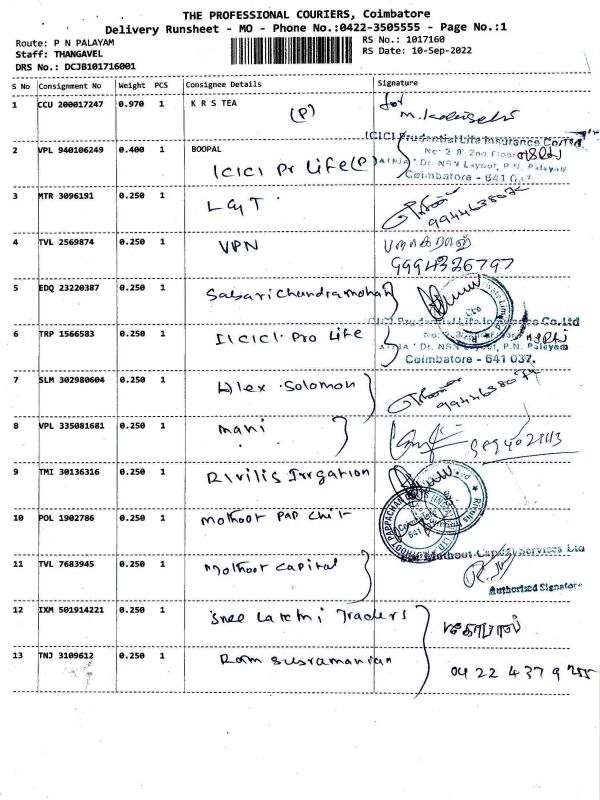 THE PROFESSIONAL COURIERS, Coimbatore
Delivery Runsheet - MO - Phone No.:0422-3505555 - Page No.:1
Route: P N PALAYAM
RS No.: 1017160
Staff: THANGAVEL
RS Date: 10-Sep-2022
DRS No.: DCJB101716001
S No Consignment No Weight PCS Consignee Details Signature
1 CCU 200017247 0.970 1 K R S TEA (P) for
2 VPL 940106249 0.400 1 BOOPAL
ICICI Pr Life (P)
ICICI Prudential Life Insurance Co Ltd
Dr. NRN Layout, P.N. Palayam
Coimbatore - 641 037
3 MTR 3096191 0.250 1 L&T 9944638072
4 TVL 2569874 0.250 1 VPN
9994326797
5 EDQ 23220387 0.250 1 Sabari Chandramohan
6 TRP 1566583 0.250 1 ICICI Pro Life
ICICI Prudential Life Insurance Co.Ltd
Dr. NRN Layout, P.N. Palayam
Coimbatore - 641 037.
7 SLM 302980604 0.250 1 Alex Solomon 9944638072
8 VPL 335081681 0.250 1 mani
9 TMI 30136316 0.250 1 Rivilis Irrgation
10 POL 1902786 0.250 1 mothoot Pap Chit
For Muthoot Capital Services Ltd
11 TVL 7683945 0.250 1 Mothoot Capital
Authorised Signatory
12 IXM 501914221 0.250 1 Sree Lakmi Traders கோபால்
13 TNJ 3109612 0.250 1 Ram Subramanian 0422 4379755